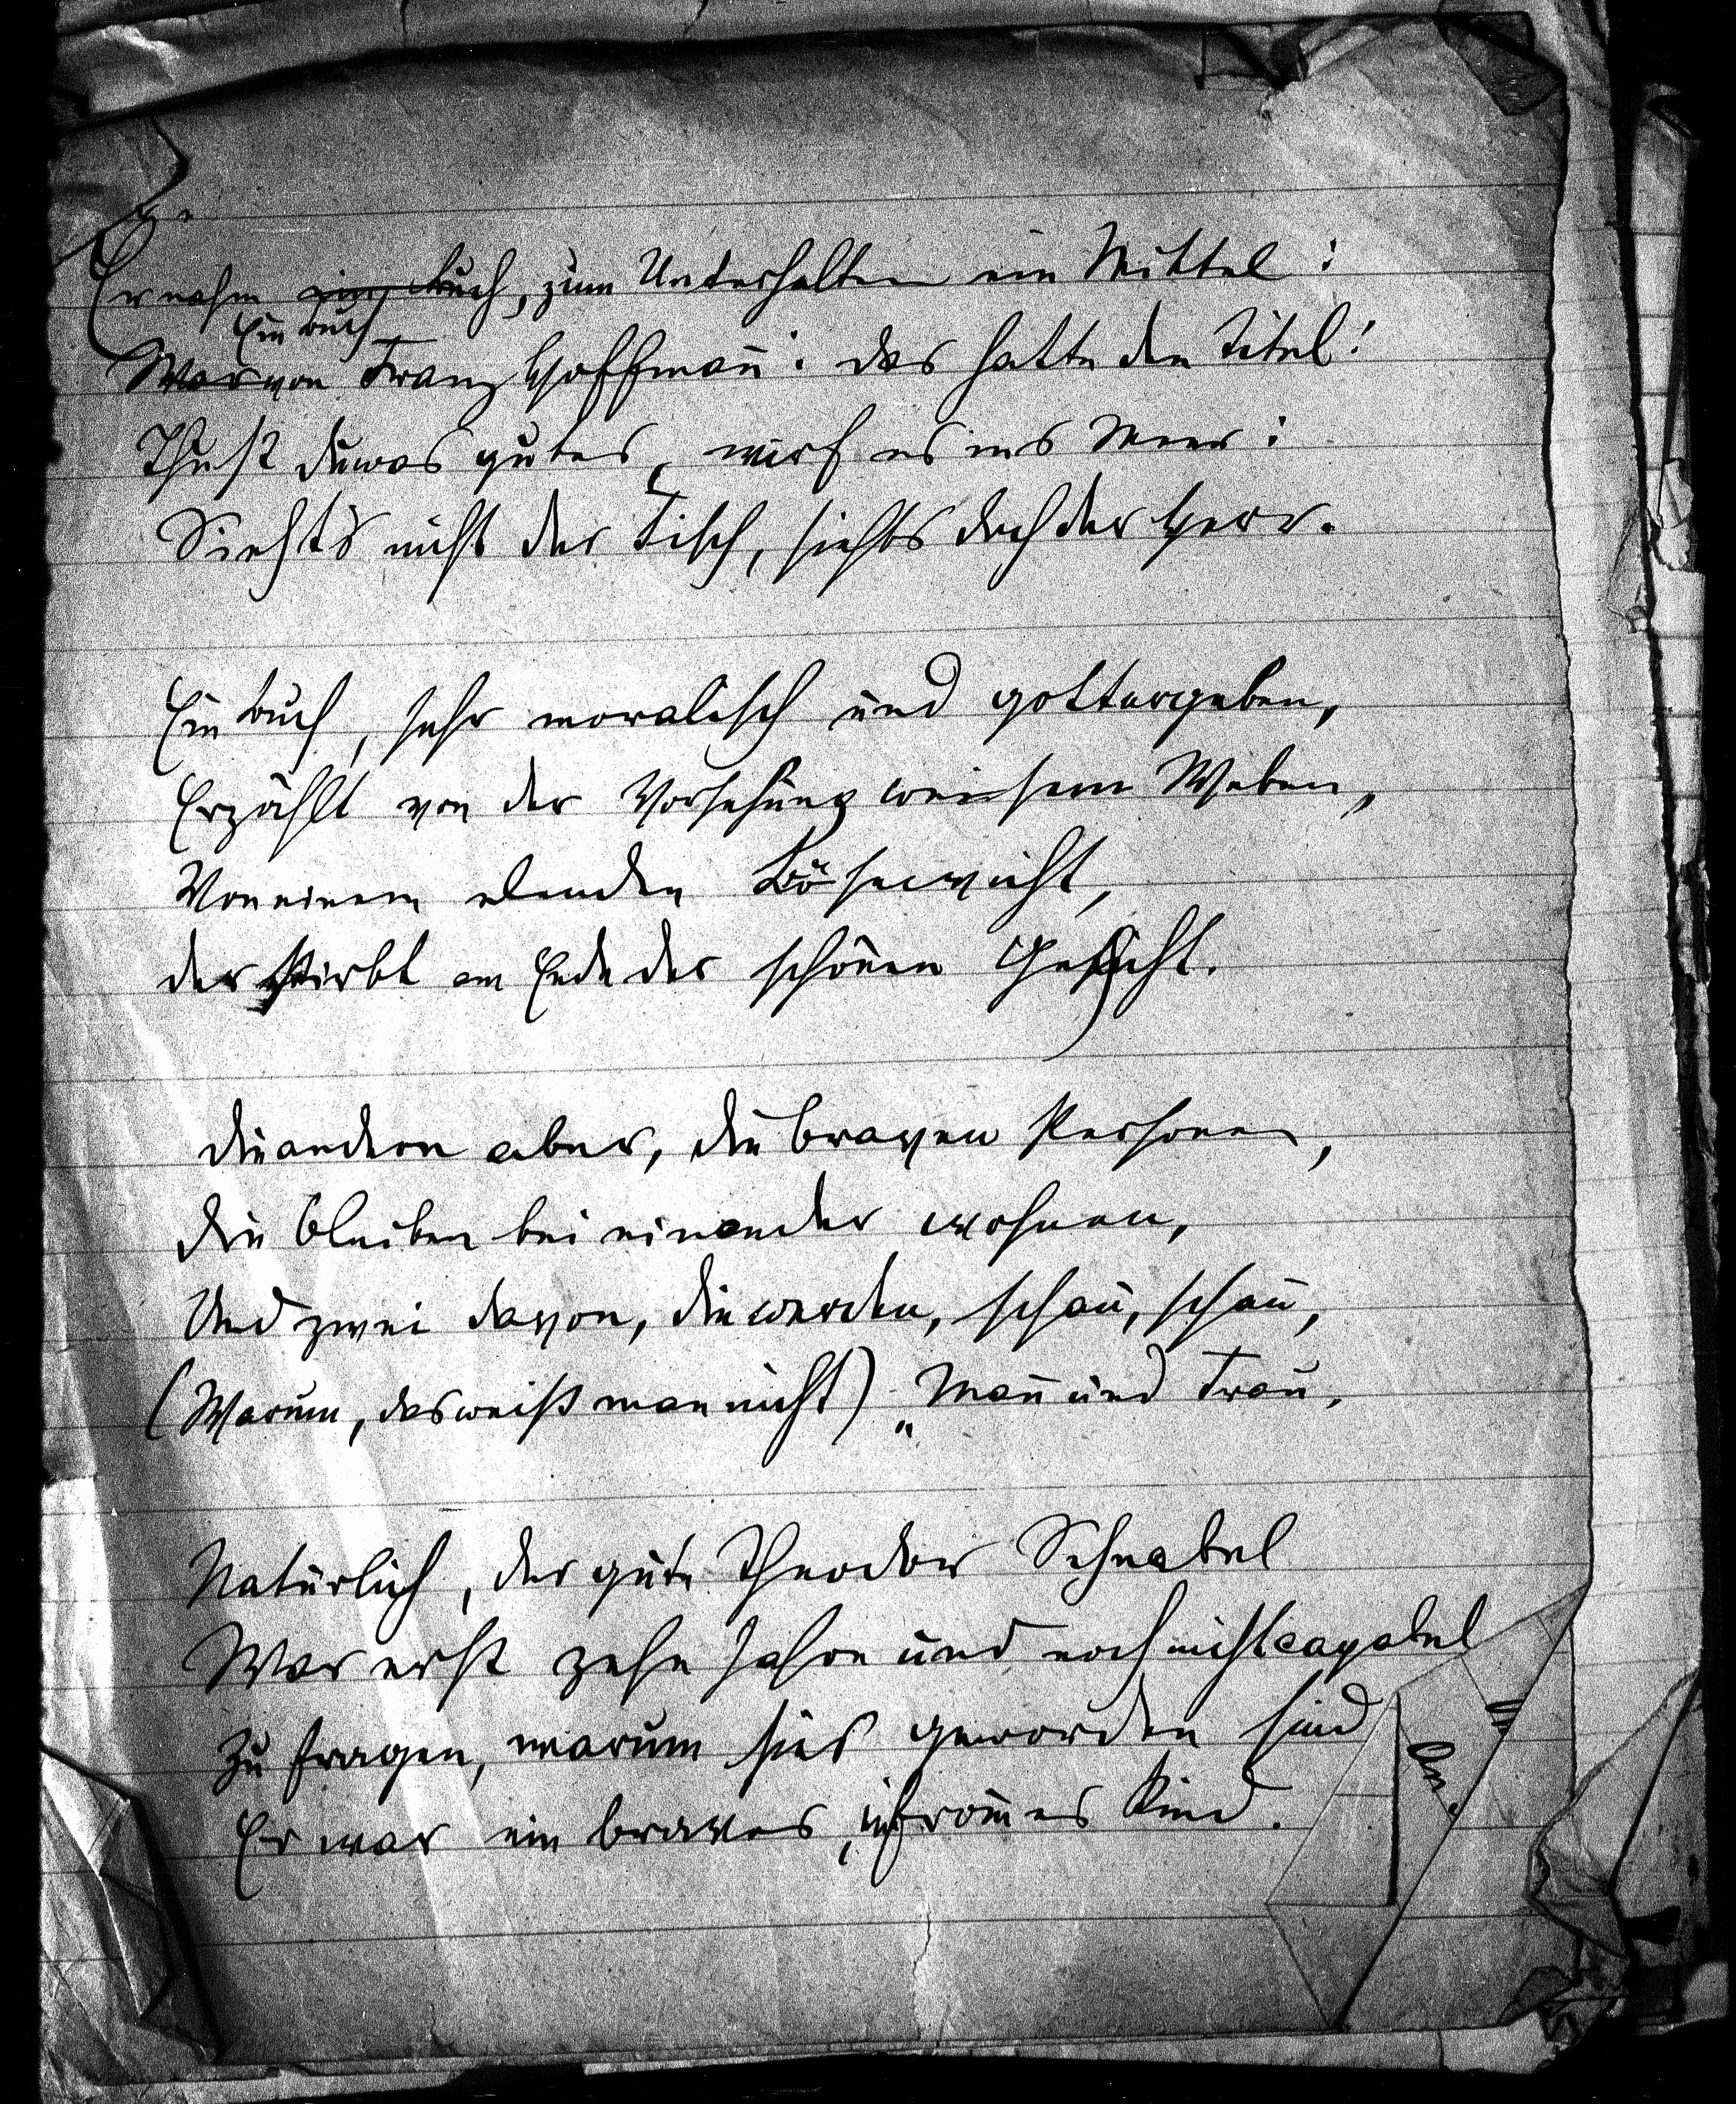 Er nahm ein Buch, zum Unterhalten ein Mittel:
Ein Buch
War von Franz Hoffmann. Das hatte den Titel:
Thust du was gutes, wirf es ins Meer:
Siehts nicht der Fisch, siehts doch der Herr.
Ein Buch, sehr moralisch und gottergeben,
Erzählt von der Vorsehung weisem Weben,
Von einem elenden Bösewicht,
der stirbt am Ende der schönen Geschicht.
die andern aber, die braven Personen,
die bleiben bei einander wohnen,
Und zwei davon, die werden, schau, schau,
(Warum, das weiß man nicht) „Mann und Frau.
Natürlich, der gute Theodor Schnabel
War erst zehn Jahre und noch nicht capabel
Zu fragen, warum sies geworden sind
Er war ein braves, frommes Kind.